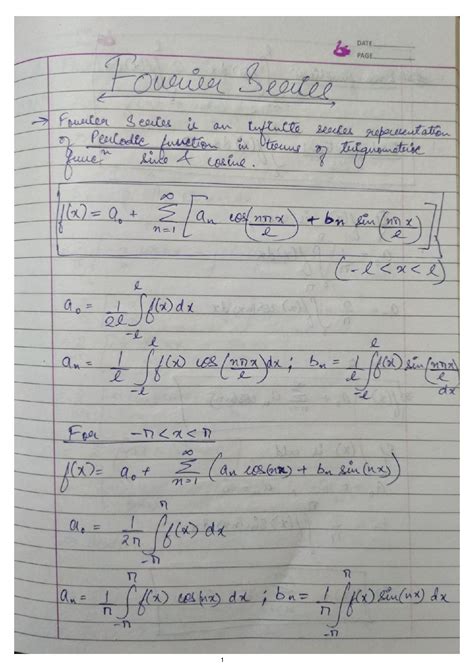 DATE
PAGE
Fourier Series
→ Fourier Series is an infinite series representation
of Periodic function in terms of trigonometric
funcⁿ sine & cosine.
f(x) = a₀ + ∞∑n=1 [aₙ cos(nπx/l) + bₙ sin(nπx/l)]
(-l < x < l)
a₀ = 1/2l ∫₋ₗˡ f(x) dx
aₙ = 1/l ∫₋ₗˡ f(x) cos(nπx/l) dx ; bₙ = 1/l ∫₋ₗˡ f(x) sin(nπx/l) dx
For -π < x < π
f(x) = a₀ + ∞∑n=1 (aₙ cos(nx) + bₙ sin(nx))
a₀ = 1/2π ∫₋π^π f(x) dx
aₙ = 1/π ∫₋π^π f(x) cos(nx) dx ; bₙ = 1/π ∫₋π^π f(x) sin(nx) dx
1